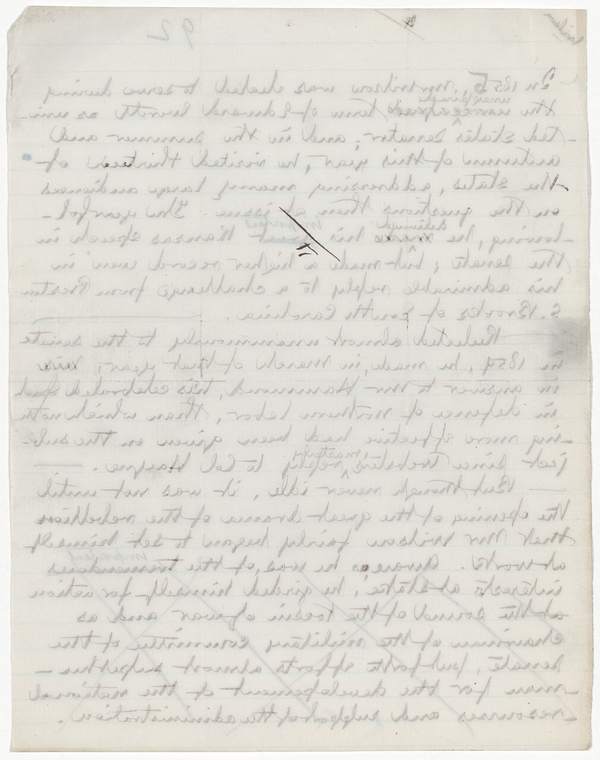 92
In 1855, Mr Wilson was elected to serve during
the unexpired term of Edward Everett as Uni-
ted States senator; and in the summer and
autumn of this year, he visited thirteen of
the states, addressing many large audiences
on the questions then at issue. The year fol-
lowing, he delivered his great Kansas speech in
the senate; but made a higher record even in
his admirable reply to a challenge from Preston
S. Brooks of South Carolina.
Reelected almost unanimously to the senate
in 1859, he made, in March of that year,
in answer to Mr Hammond, his celebrated speech
in defence of northern labor, than which noth-
ing more effective had been given on the sub-
ject since Webster's masterly reply to Col Hayne.
But though never idle, it was not until
the opening of the great drama of the rebellion
that Mr Wilson fairly began to set himself
at work. Aware as he was of the tremendous
interests at stake, he girded himself for action
at the sound of the tocsin of war and as
chairman of the military committee of the
senate, put forth efforts almost superhu-
man for the development of the national
resources and support of the administration.